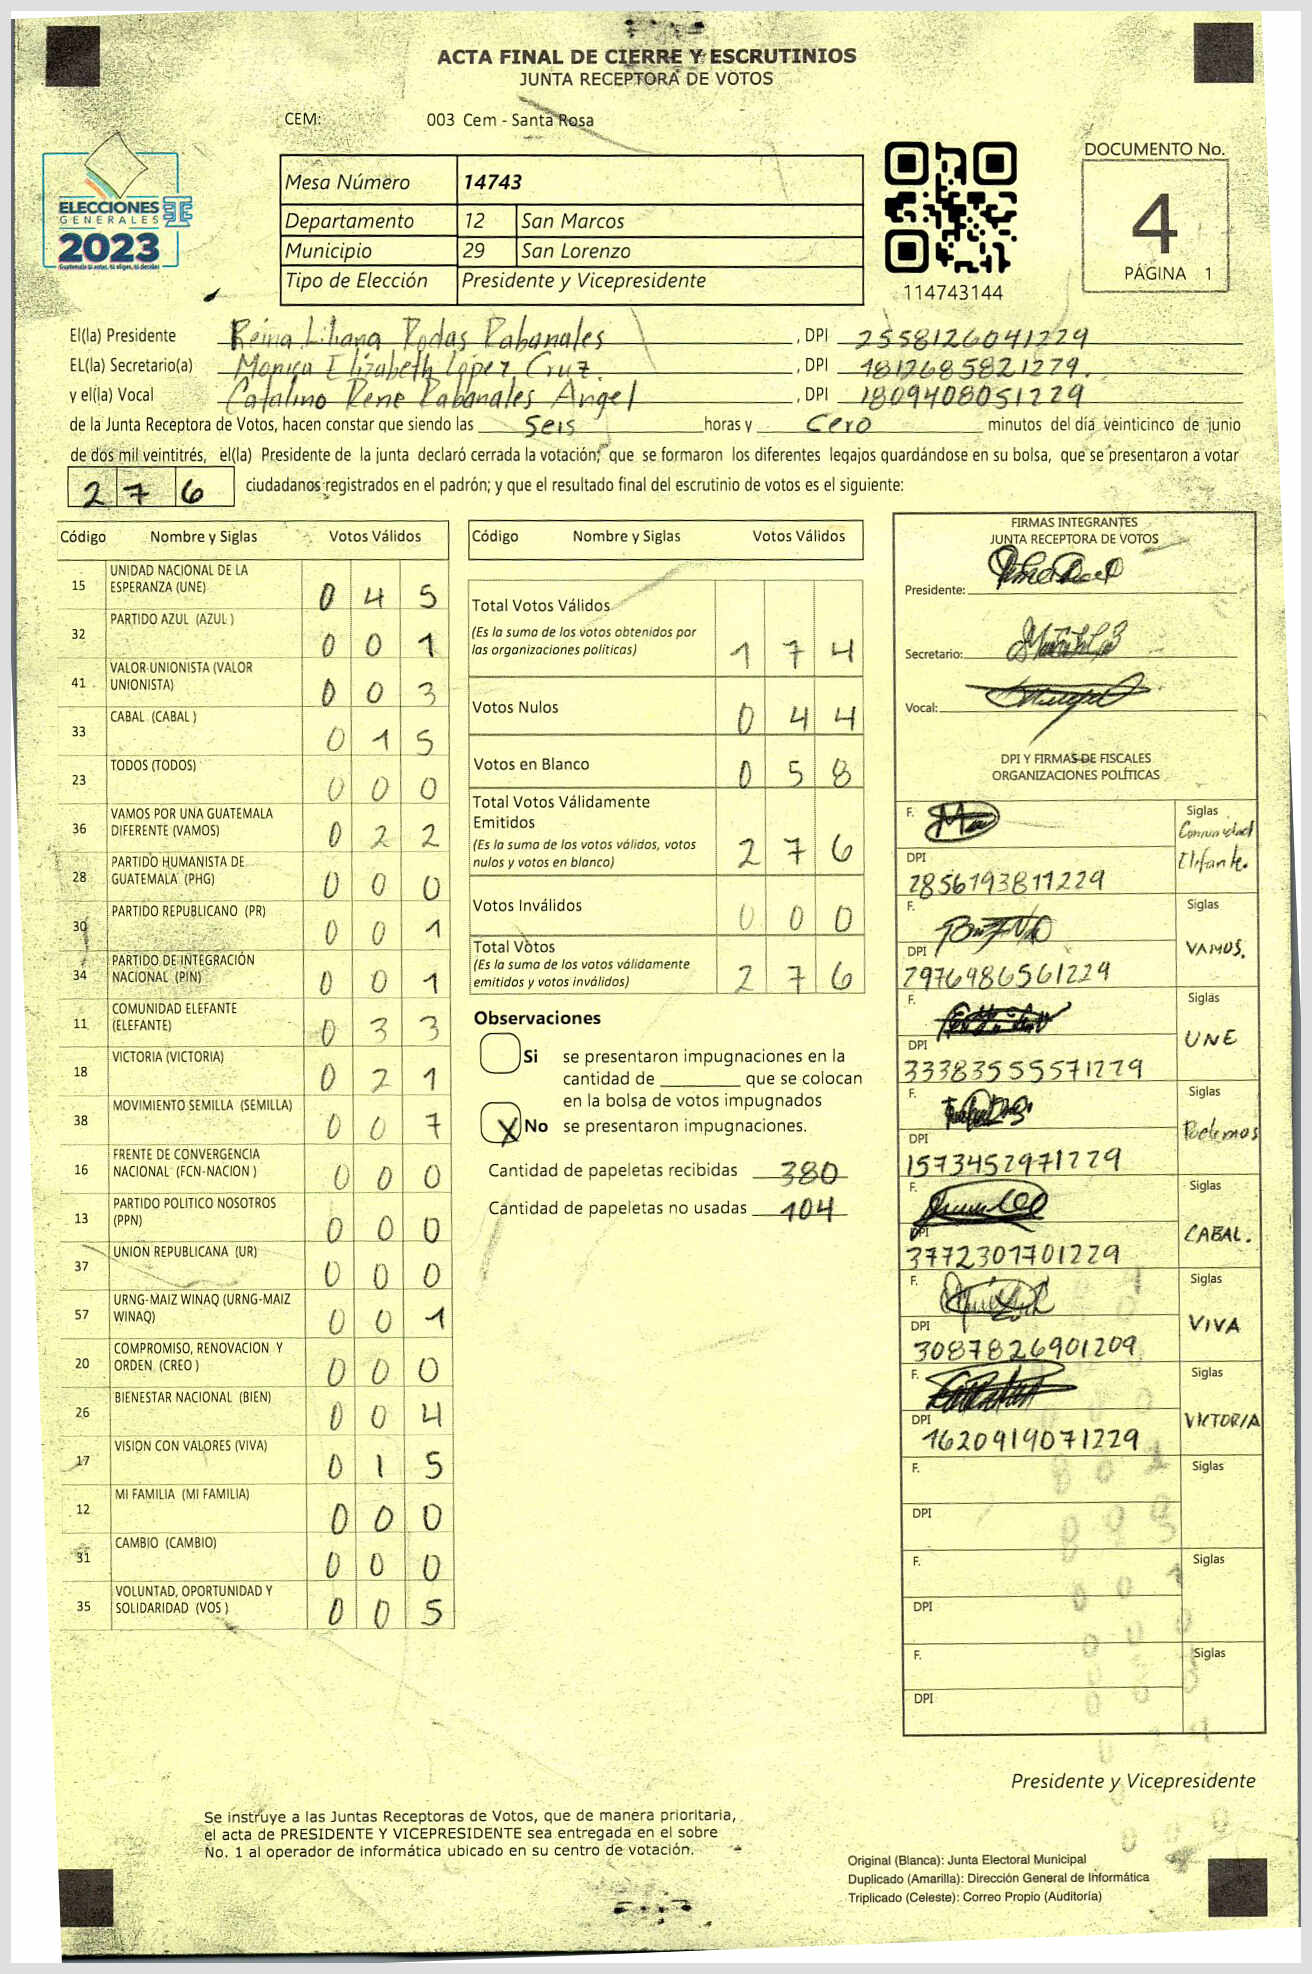 ACTA FINAL DE CIERRE Y ESCRUTINIOS
JUNTA RECEPTORA DE VOTOS
CEM: 003 Cem - Santa Rosa
ELECCIONES
GENERALES
2023
Mesa Número 14743
Departamento 12 San Marcos
Municipio 29 San Lorenzo
Tipo de Elección Presidente y Vicepresidente
114743144
DOCUMENTO No.
4
PÁGINA 1
El(la) Presidente Reina Liliana Rodas Rabanales, DPI 2558126041229
EL(la) Secretario(a) Monica Elizabeth López Cruz, DPI 1812685821279.
y el(la) Vocal Catalino Rene Rabanales Angel, DPI 1809408051229
de la Junta Receptora de Votos, hacen constar que siendo las Seis horas y Cero minutos del día veinticinco de junio
de dos mil veintitrés, el(la) Presidente de la junta declaró cerrada la votación; que se formaron los diferentes legajos quardándose en su bolsa, que se presentaron a votar
276 ciudadanos registrados en el padrón; y que el resultado final del escrutinio de votos es el siguiente:
Código Nombre y Siglas Votos Válidos
15 UNIDAD NACIONAL DE LA
ESPERANZA (UNE) 0 4 5
32 PARTIDO AZUL (AZUL ) 0 0 1
41 VALOR UNIONISTA (VALOR
UNIONISTA) 0 0 3
33 CABAL (CABAL ) 0 1 5
23 TODOS (TODOS) 0 0 0
36 VAMOS POR UNA GUATEMALA
DIFERENTE (VAMOS) 0 2 2
28 PARTIDO HUMANISTA DE
GUATEMALA (PHG) 0 0 0
30 PARTIDO REPUBLICANO (PR) 0 0 1
34 PARTIDO DE INTEGRACIÓN
NACIONAL (PIN) 0 0 1
11 COMUNIDAD ELEFANTE
(ELEFANTE) 0 3 3
18 VICTORIA (VICTORIA) 0 2 1
38 MOVIMIENTO SEMILLA (SEMILLA) 0 0 7
16 FRENTE DE CONVERGENCIA
NACIONAL (FCN-NACION ) 0 0 0
13 PARTIDO POLITICO NOSOTROS
(PPN) 0 0 0
37 UNION REPUBLICANA (UR) 0 0 0
57 URNG-MAIZ WINAQ (URNG-MAIZ
WINAQ) 0 0 1
20 COMPROMISO, RENOVACION Y
ORDEN (CREO ) 0 0 0
26 BIENESTAR NACIONAL (BIEN) 0 0 4
17 VISION CON VALORES (VIVA) 0 1 5
12 MI FAMILIA (MI FAMILIA) 0 0 0
31 CAMBIO (CAMBIO) 0 0 0
35 VOLUNTAD, OPORTUNIDAD Y
SOLIDARIDAD (VOS ) 0 0 5
Código Nombre y Siglas Votos Válidos
Total Votos Válidos
(Es la suma de los votos obtenidos por
las organizaciones politicas) 1 7 4
Votos Nulos 0 4 4
Votos en Blanco 0 5 8
Total Votos Válidamente
Emitidos
(Es la suma de los votos válidos, votos
nulos y votos en blanco) 2 7 6
Votos Inválidos 0 0 0
Total Votos
(Es la suma de los votos válidamente
emitidos y votos inválidos) 2 7 6
Observaciones
Si se presentaron impugnaciones en la
cantidad de ________ que se colocan
en la bolsa de votos impugnados
X No se presentaron impugnaciones.
Cantidad de papeletas recibidas 380
Cantidad de papeletas no usadas 104
FIRMAS INTEGRANTES
JUNTA RECEPTORA DE VOTOS
Presidente:
Secretario:
Vocal:
DPI Y FIRMAS DE FISCALES
ORGANIZACIONES POLÍTICAS
F. Siglas Comunidad
Elefante.
DPI 2856193811229
F. Siglas VAMOS.
DPI 2976986561229
F. Siglas UNE
DPI 33383555571229
F. Siglas Podemos
DPI 1573452971229
F. Siglas CABAL.
DPI 3772301701229
F. Siglas VIVA
DPI 3087826901209
F. Siglas VICTORIA
DPI 1620919071229
F. Siglas
DPI
F. Siglas
DPI
F. Siglas
DPI
Presidente y Vicepresidente
Se instruye a las Juntas Receptoras de Votos, que de manera prioritaria,
el acta de PRESIDENTE Y VICEPRESIDENTE sea entregada en el sobre
No. 1 al operador de informática ubicado en su centro de votación.
Original (Blanca): Junta Electoral Municipal
Duplicado (Amarilla): Dirección General de Informática
Triplicado (Celeste): Correo Propio (Auditoría)